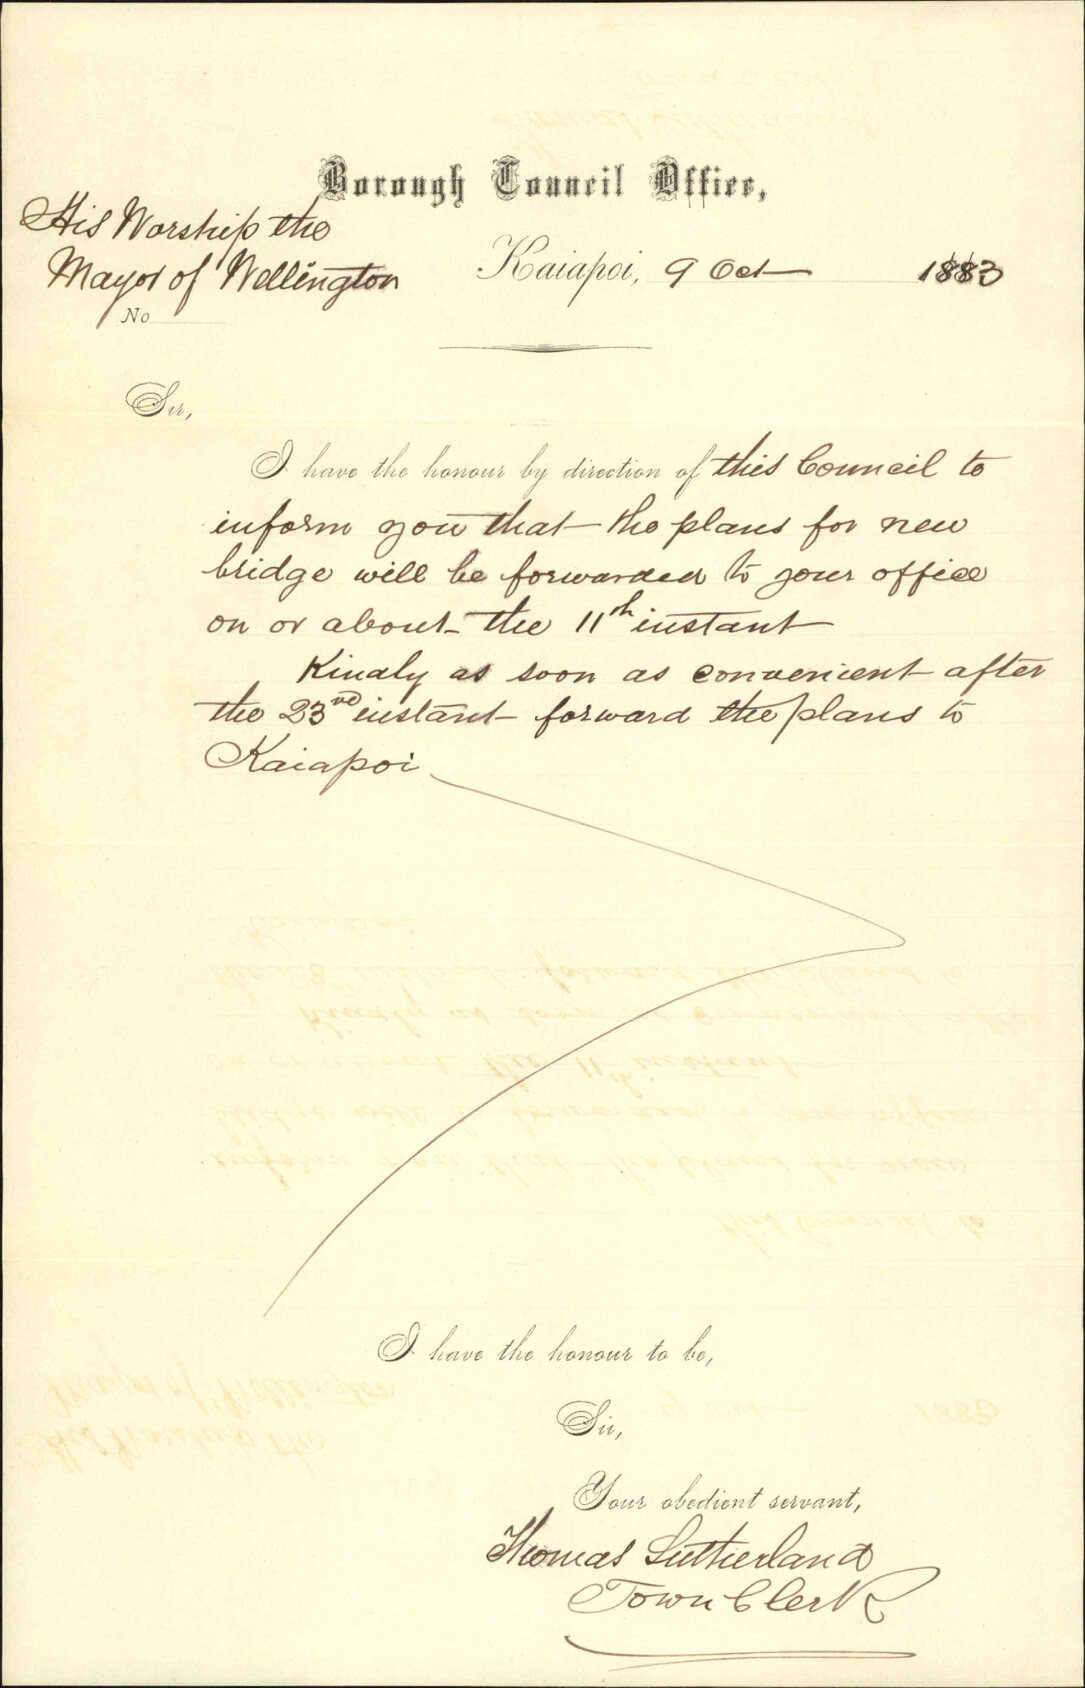 Borough Council Office,
His Worship the
Mayor of Wellington
Kaiapoi, 9 Oct 1883
No
Sir,
I have the honour by direction of this Council to
inform you that the plans for new
bridge will be forwarded to your office
on or about the 11th instant
Kindly as soon as convenient after
the 23rd instant forward the plans to
Kaiapoi
I have the honour to be,
Sir,
Your obedient servant,
Thomas Sutherland
Town Clerk